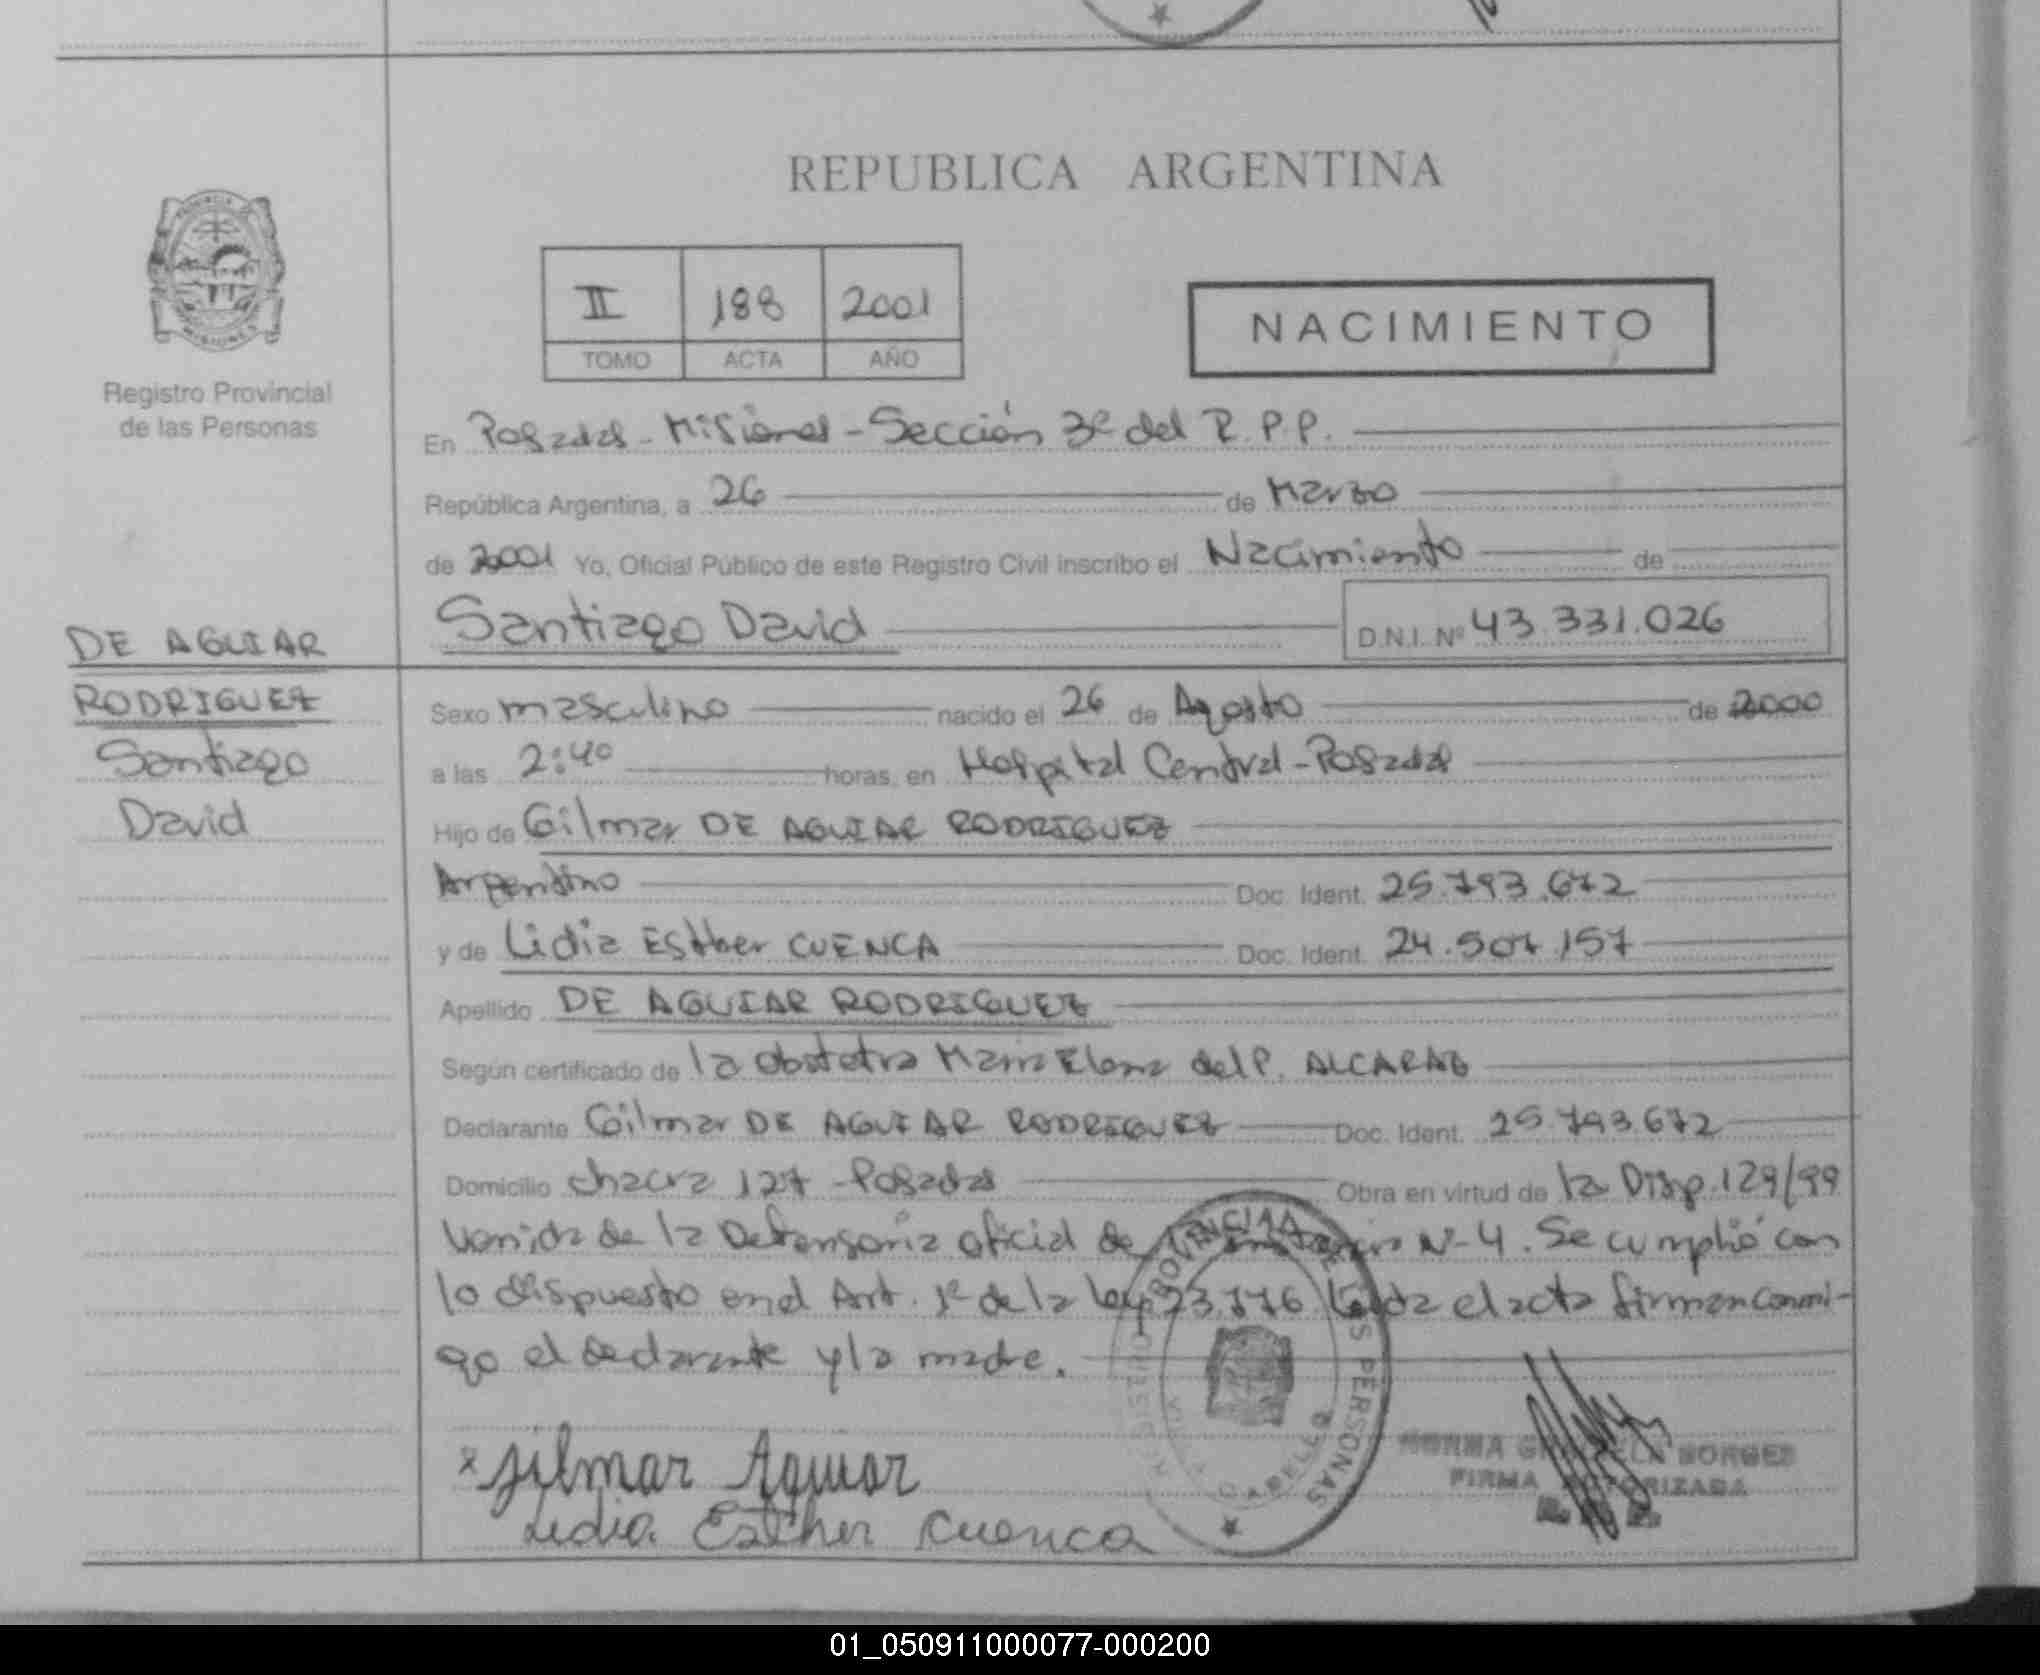 REPUBLICA ARGENTINA
PROVINCIA DE
MISIONES
Registro Provincial
de las Personas
II 188 2001
TOMO ACTA AÑO
NACIMIENTO
En Posadas - Misiones - Sección 3º del R.P.P.
República Argentina, a 26 de Marzo
de 2001 Yo, Oficial Público de este Registro Civil inscribo el Nacimiento de
Santiago David D.N.I. Nº 43.331.026
DE AGUIAR
RODRIGUEZ
Santiago
David
Sexo masculino nacido el 26 de Agosto de 2000
a las 2:40 horas, en Hospital Central - Posadas
Hijo de Gilmar DE AGUIAR RODRIGUEZ
Argentino Doc. Ident. 25.793.672
y de Lidia Esther CUENCA Doc. Ident. 24.507.157
Apellido DE AGUIAR RODRIGUEZ
Según certificado de la obstetra Maria Elena del P. ALCARAZ
Declarante Gilmar DE AGUIAR RODRIGUEZ Doc. Ident. 25.793.672
Domicilio chacra 127 - Posadas Obra en virtud de la Disp. 129/99
venida de la Defensoria oficial de Nº 4. Se cumplió con
lo dispuesto en el Art. 1º de la ley 23.776 Leida el acta firman conmi-
go el declarante y la madre.
Gilmar Aguiar
Lidia Esther Cuenca
REGISTRO PROVINCIAL DE LAS PERSONAS
CABELLO
NORMA GRACIELA BORGES
FIRMA AUTORIZADA
01_050911000077-000200